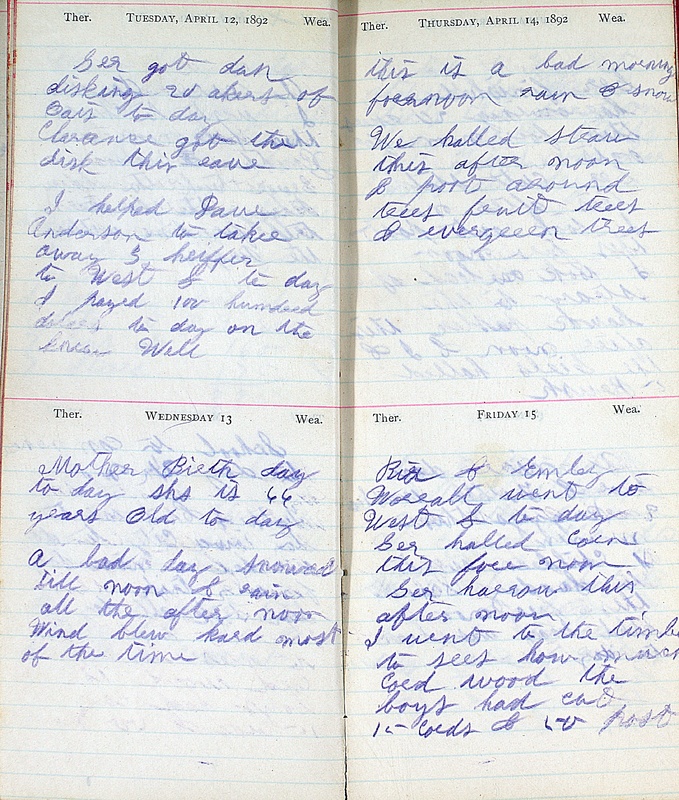 Ther. TUESDAY, APRIL 12, 1892 Wea.
Ger got dun
disking 20 akers of
Oats to day
Clarance got the
disk this eave
I helped Dave
Anderson to takee
away 3 heiffer
to West & to day
I payed 100 hundred
to day on the
Well
Ther. WEDNESDAY 13 Wea.
Mother Birth day
to day shs is 66
years Old to day
A bad day snowed
till noon & rain
all the after noon
Wind blew hard most
of the time
Ther. THURSDAY, APRIL 14, 1892 Wea.
this is a bad morning
forenoon rain & snow
We halled straw
this after noon
& poot around
trees fruit trees
& evergreen trees
Ther. FRIDAY 15 Wea.
& Emley
went to
West & to day
Ger halled Corn
this fore noon
Ger harrow this
after noon
I went to the timber
to sees how much
Cord wood the
boys had cut
15 Cords & 50 post